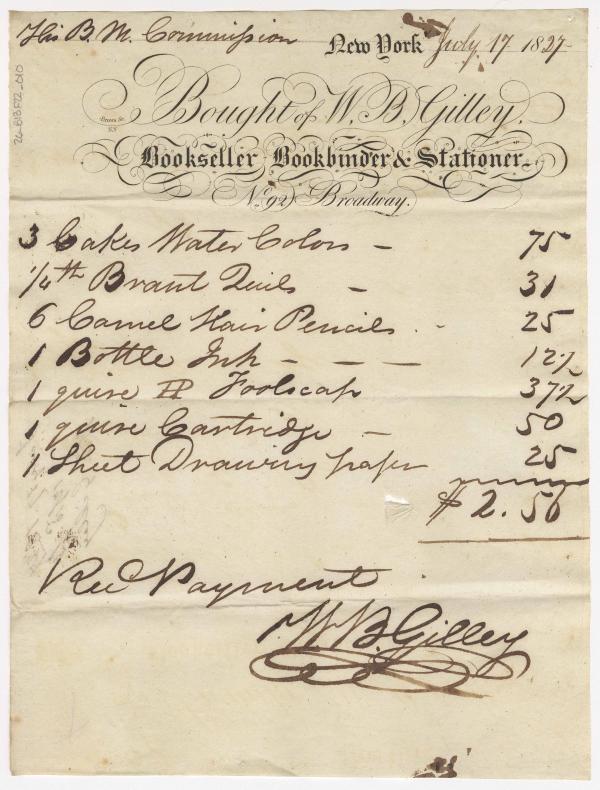 His B. M. Commission
New York July 17 1827
Bought of W. B. Gilley.
Bookseller Bookbinder & Stationer
No. 92 Broadway.
3 Cakes Water Colors - 75
1/4th Brant Quils - 31
6 Camel Hair Pencils - 25
1 Bottle Ink - - - 12½
1 quire Foolscap 37½
1 quire Cartridge - 50
1 Sheet Drawing paper 25
$ 2.56
Rec Payment
W. B. Gilley